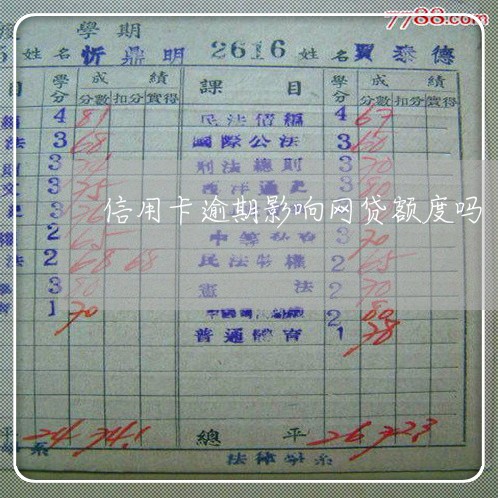 7788.com
學期
姓名 忻鼎明 2616 姓名 賈泰德
目 學分 成績 課目 學分 成績
分數 扣分 實得 分數 扣分 實得
4 81 民法債編 4 67
法 3 68 國際公法 3 60
3 刑法總則 3 70
3 75 西洋通史 3 80
信用卡逾期影响网贷额度吗
2 65 3 70
法 2 68 68 民法物權 2 65
3 80 憲法 2 70
1 70 2 80
普通體育 1 78
平 24 74.1 總平 26 72.3
系 法律學系